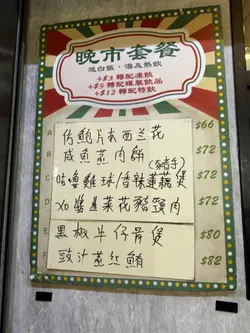 晚市套餐
送白飯、湯及熱飲
+$3 轉配凍飲
+$5 轉配罐裝飲品
+$12 轉配特飲
A 仿鮑片扒西兰花 $66
B 咸魚蒸肉餅 $72
(豬手)
C 咕嚕雞球/香辣蓮藕煲 $72
D XO醬韭菜花豬頸肉 $72
E 黑椒牛仔骨煲 $80
F 豉汁蒸红鮪 $82